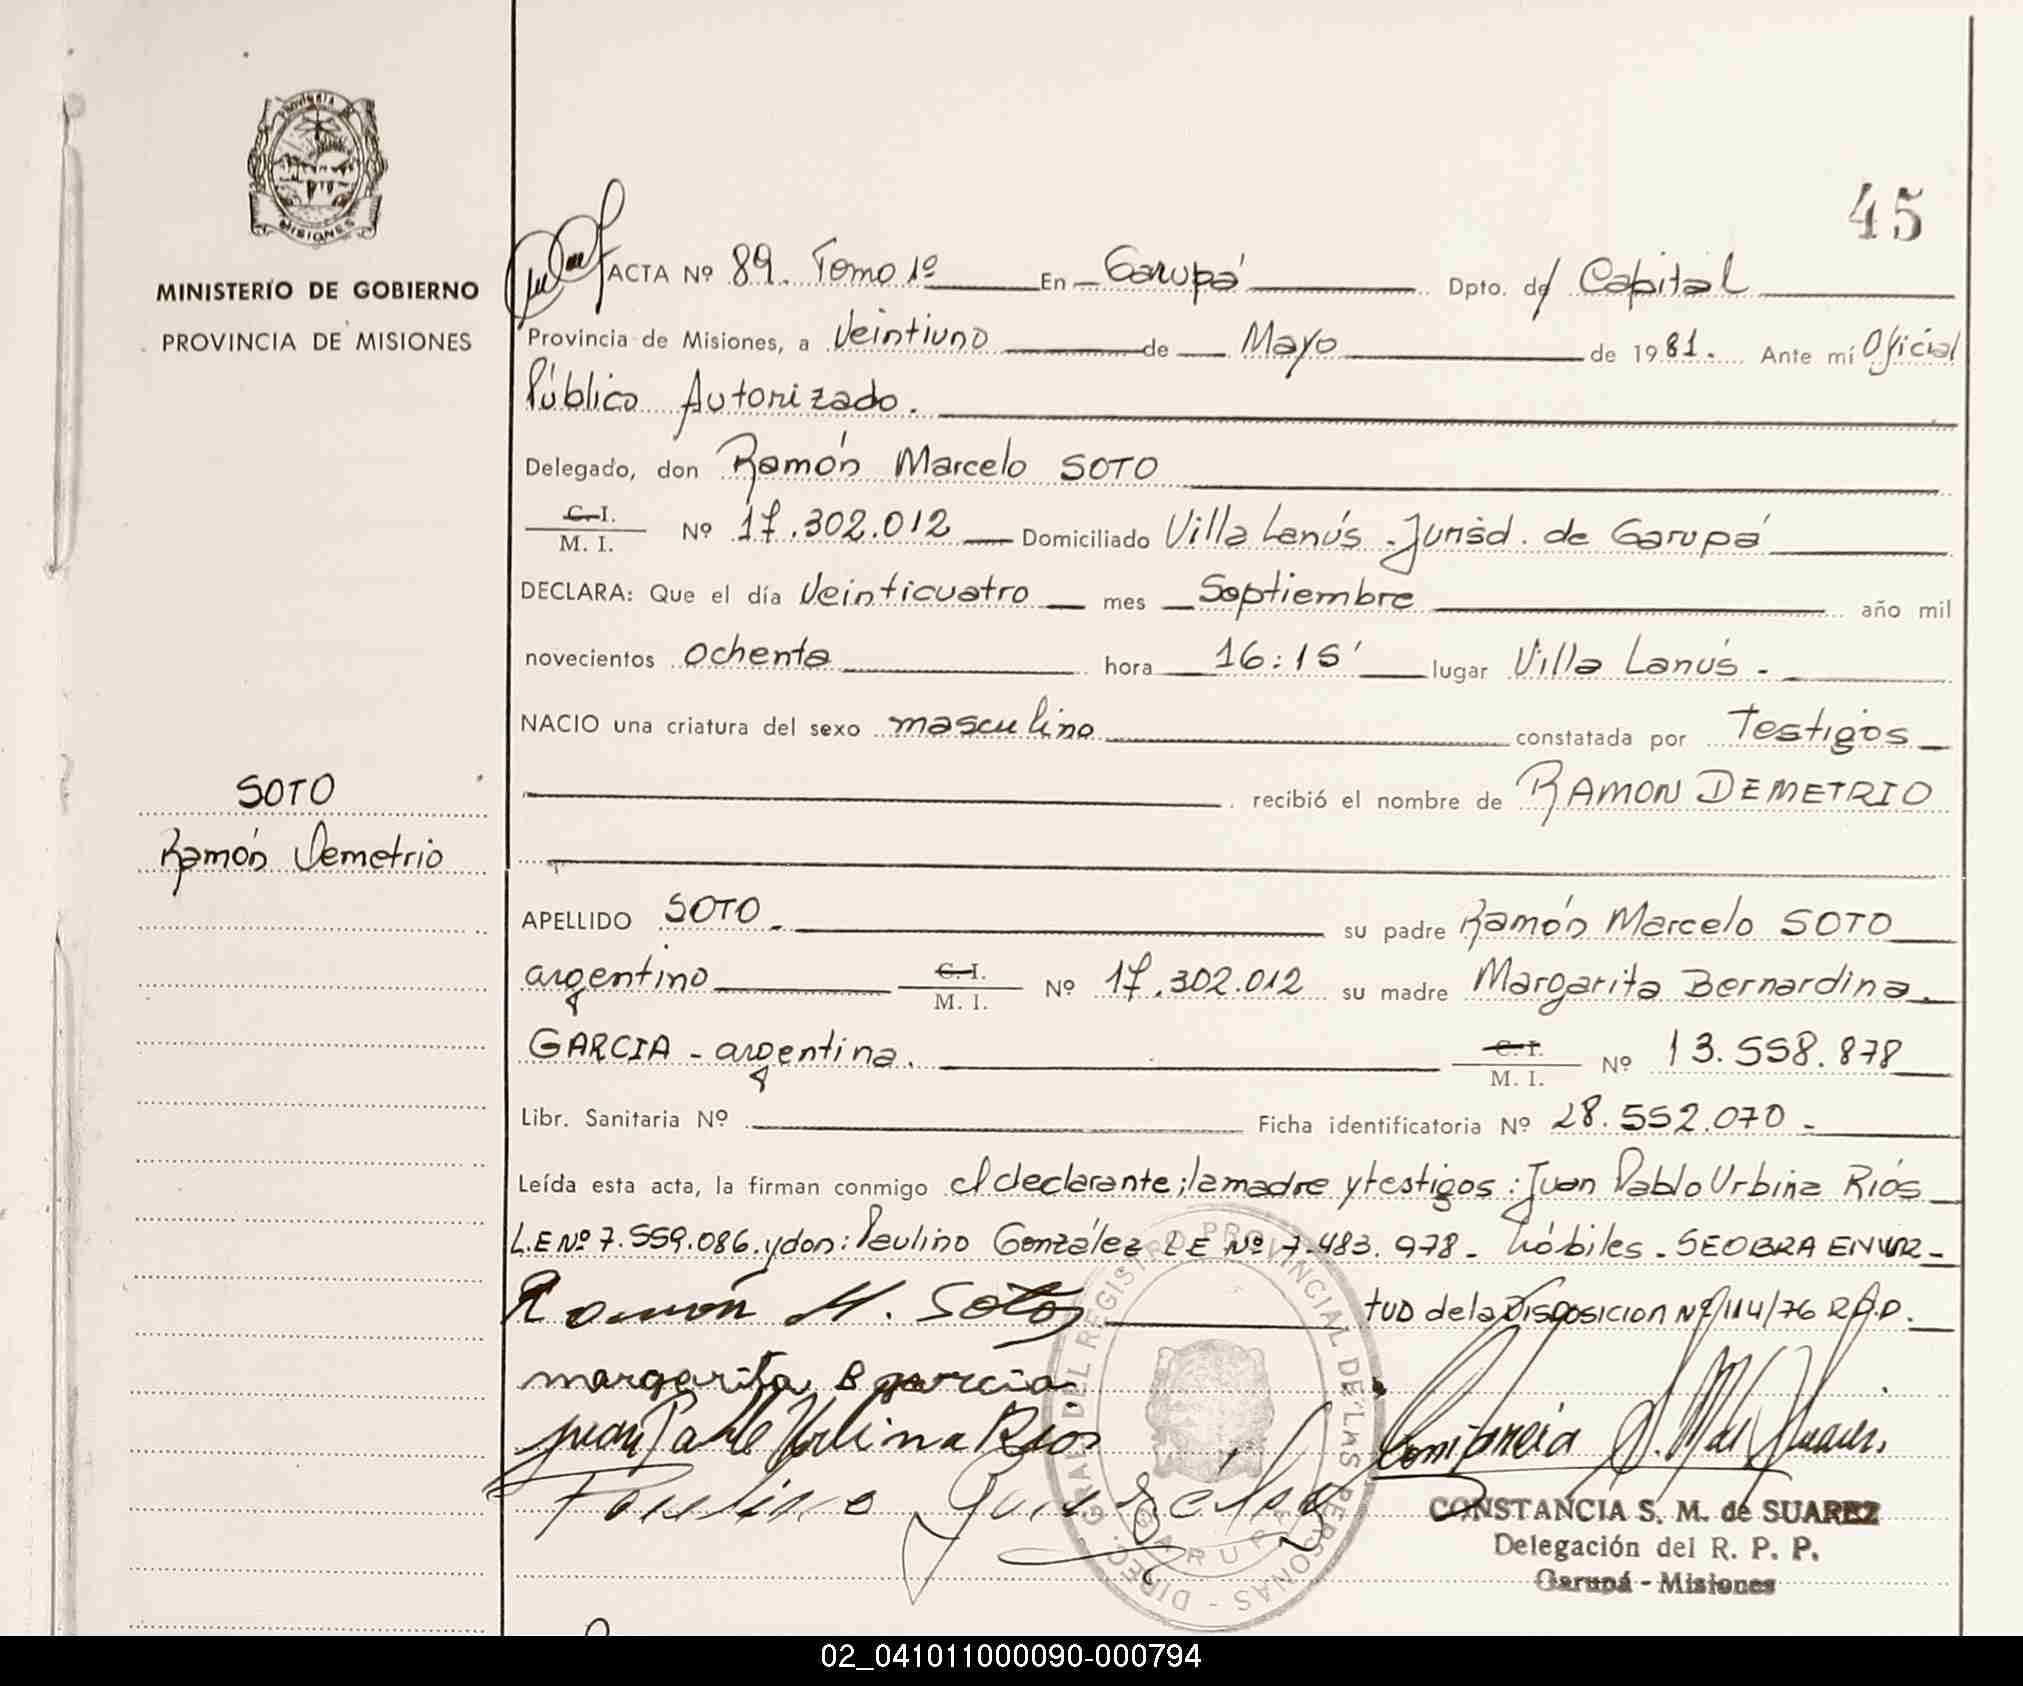 45
MISIONES
MINISTERIO DE GOBIERNO
PROVINCIA DE MISIONES
ACTA Nº 89. Tomo 1º En Garupá Dpto. de Capital
Provincia de Misiones, a Veintiuno de Mayo de 1981. Ante mí Oficial
Público Autorizado.
Delegado, don Ramón Marcelo SOTO
C. I.
M. I. Nº 17.302.012 Domiciliado Villa Lanús - Jurisd. de Garupá
DECLARA: Que el día Veinticuatro mes Septiembre año mil
novecientos ochenta hora 16:15' lugar Villa Lanús -
NACIO una criatura del sexo masculino constatada por Testigos
recibió el nombre de RAMON DEMETRIO
SOTO
Ramón Demetrio
APELLIDO SOTO su padre Ramón Marcelo SOTO
argentino C. I. M. I. Nº 17.302.012 su madre Margarita Bernardina
GARCIA - argentina. C. I. M. I. Nº 13.558.878
Libr. Sanitaria Nº Ficha identificatoria Nº 28.552.070 -
Leída esta acta, la firman conmigo el declarante; la madre y testigos: Juan Pablo Urbina Ríos
L.E Nº 7.559.086. y don: Paulino González L E Nº 7.483.978 - hábiles - SE OBRA EN VIR-
TUD de la DISPOSICION Nº 114/76 R.P.P.
Ramón M. Soto
margarita B garcia
juan Pablo Urbina Rios
Paulino Gonzalez
DIREC. GRAL. DEL REGISTRO PROVINCIAL DE LAS PERSONAS -
GARUPA
CONSTANCIA S. M. de SUAREZ
Delegación del R. P. P.
Garupá - Misiones
02_041011000090-000794